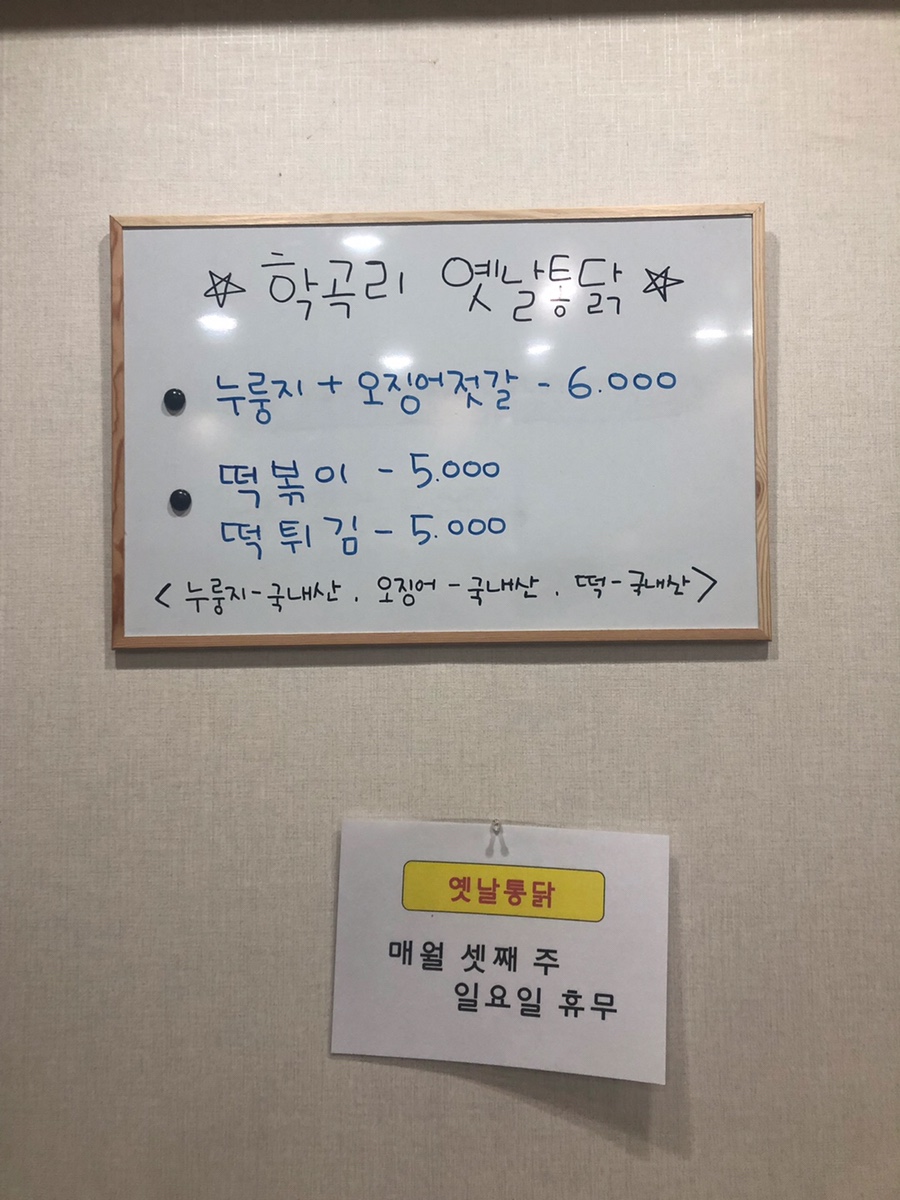 ☆ 학곡리 옛날통닭 ☆
누룽지 + 오징어젓갈 - 6.000
떡볶이 - 5.000
떡튀김 - 5.000
< 누룽지-국내산 . 오징어 -국내산 . 떡-국내산 >
옛날통닭
매월 셋째 주
일요일 휴무